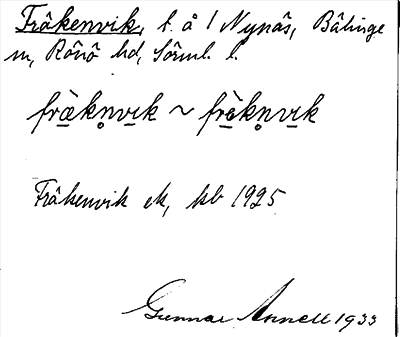 Fräkenvik, t. å 1 Nynäs, Bälinge
sn, Rönö hd, Sörml. l.
fräkn̥vik ~ frèkn̥vik
Fräkenvik ek, kb 1925
Gunnar Annell 1933